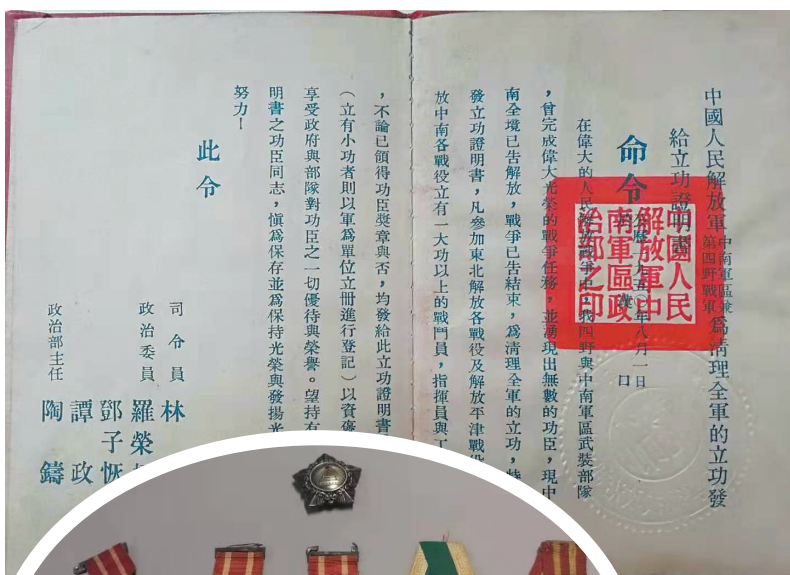 中國人民解放軍中南軍區兼第四野戰軍為清理全軍的立功發
給立功證明書
命令
公曆一九五〇年八月一日
中國人民
解放軍中
南軍區政
治部之印
在偉大的人民解放戰爭中，我四野與中南軍區武裝部隊
，曾完成偉大光榮的戰爭任務，並湧現出無數的功臣，現中
南全境已告解放，戰爭已告結束，為清理全軍的立功，特
發立功證明書，凡參加東北解放各戰役及解放平津戰役
放中南各戰役立有一大功以上的戰鬥員，指揮員與工
，不論已領得功臣獎章與否，均發給此立功證明書
（立有小功者則以軍為單位立冊進行登記）以資褒
享受政府與部隊對功臣之一切優待與榮譽。望持有
明書之功臣同志，慎為保存並為保持光榮與發揚光
努力！
此令
司令員 林
政治委員 羅榮
鄧子恢
譚政
政治部主任 陶鑄